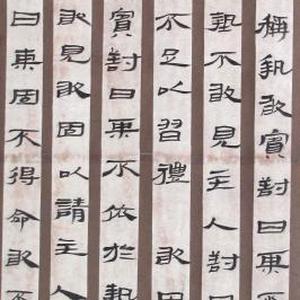 稱執敢賓對曰某不
執不敢見主人對曰
不足以習禮敢固
賓對曰某不依於執
敢見敢固以請主人
曰某固不得命敢不